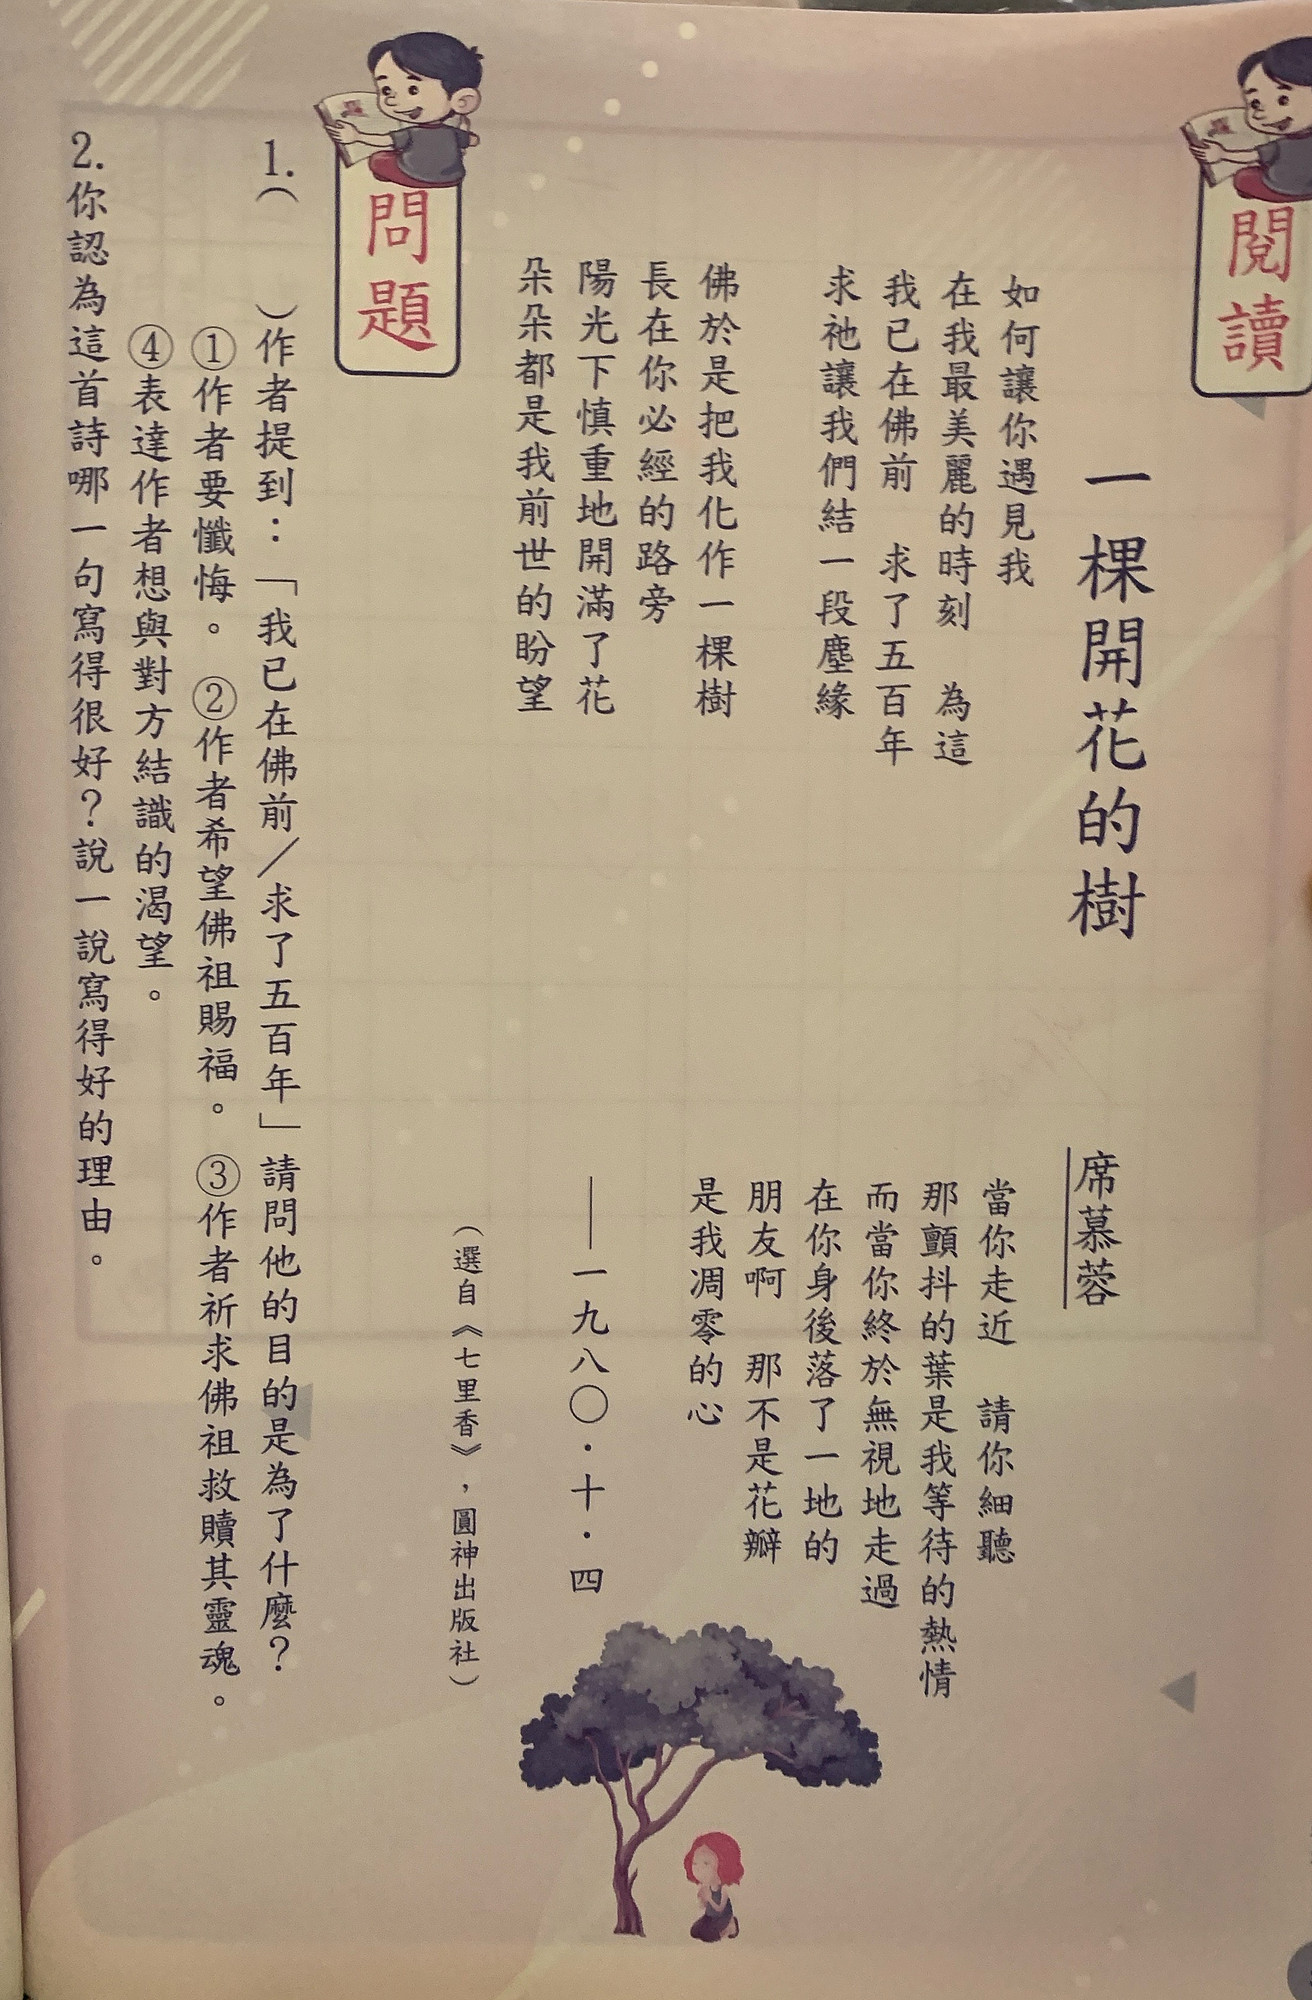 閱讀
一棵開花的樹
席慕蓉
如何讓你遇見我
在我最美麗的時刻　為這
我已在佛前　求了五百年
求祂讓我們結一段塵緣
佛於是把我化作一棵樹
長在你必經的路旁
陽光下慎重地開滿了花
朵朵都是我前世的盼望
當你走近　請你細聽
那顫抖的葉是我等待的熱情
而當你終於無視地走過
在你身後落了一地的
朋友啊　那不是花瓣
是我凋零的心
——一九八〇．十．四
（選自《七里香》，圓神出版社）
問題
1.（　　）作者提到：「我已在佛前／求了五百年」請問他的目的是為了什麼？
①作者要懺悔。②作者希望佛祖賜福。③作者祈求佛祖救贖其靈魂。
④表達作者想與對方結識的渴望。
2.你認為這首詩哪一句寫得很好？說一說寫得好的理由。